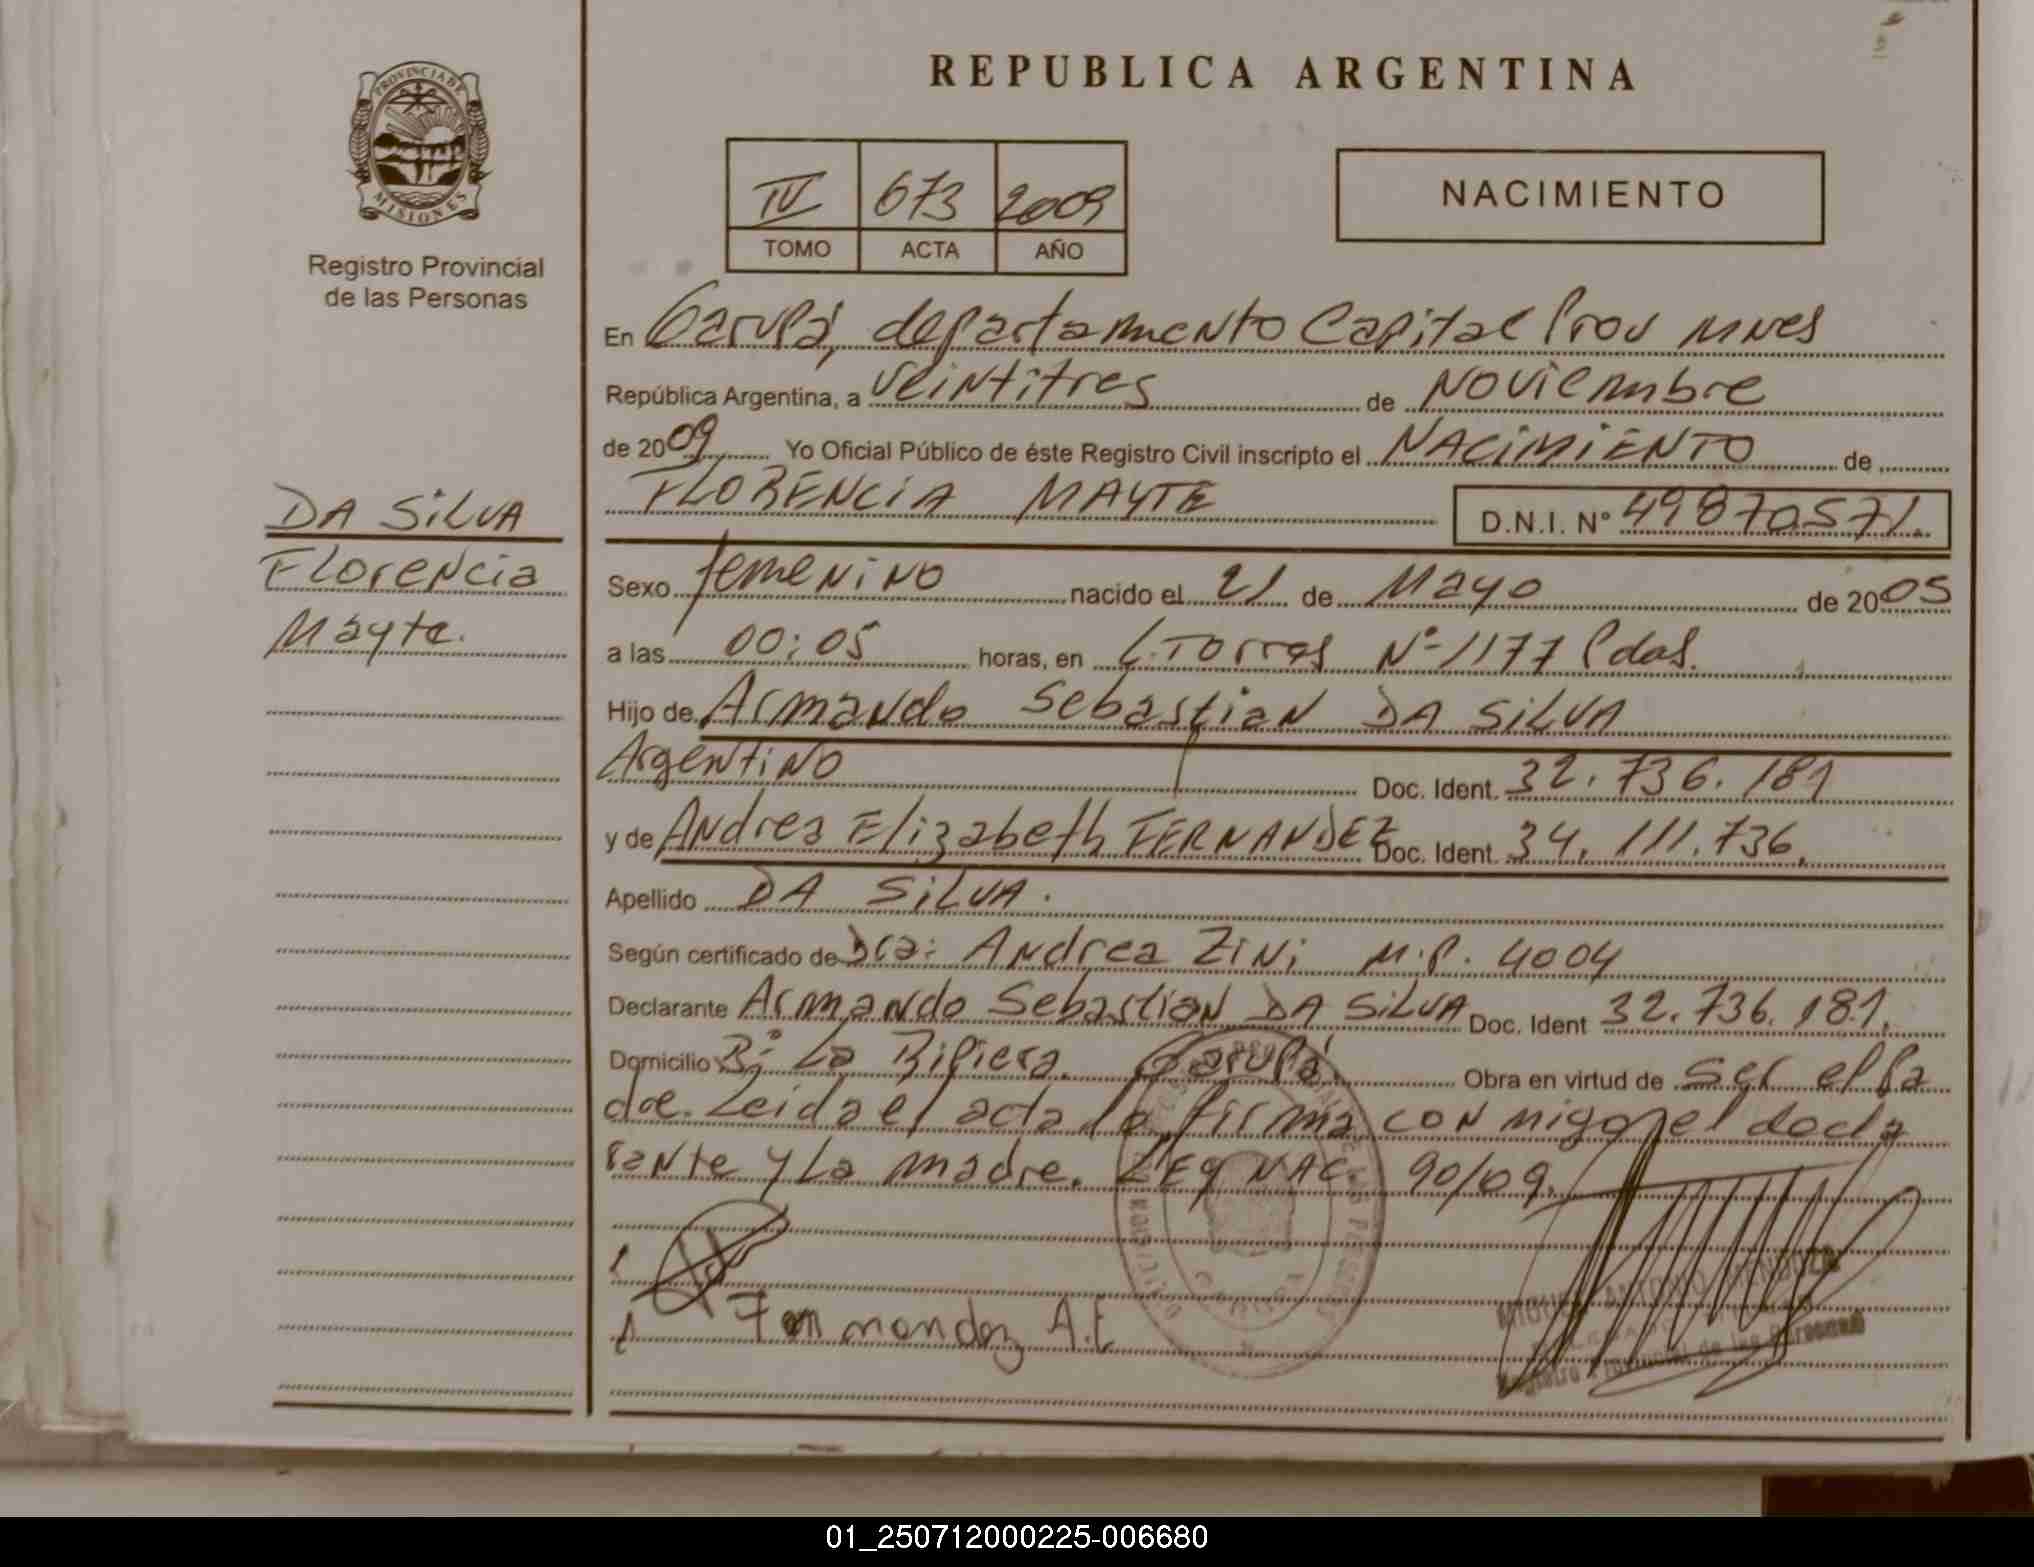 PROVINCIA DE
MISIONES
Registro Provincial
de las Personas
DA SiLVA
Florencia
Mayte.
REPUBLICA ARGENTINA
IV 673 2009
TOMO ACTA AÑO
NACIMIENTO
En Garupá, departamento Capital Prov Mnes
República Argentina, a veintitres de Noviembre
de 2009 Yo Oficial Público de éste Registro Civil inscripto el NACIMIENTO de
FLORENCIA MAYTE D.N.I. Nº 49870571.
Sexo femenino nacido el 21 de Mayo de 2005
a las 00:05 horas, en L. Torres Nº 1177 Pdas.
Hijo de Armando Sebastian DA SiLVA
Argentino Doc. Ident. 32.736.181
y de Andrea Elizabeth FERNANDEZ Doc. Ident. 34.111.736.
Apellido DA SiLVA.
Según certificado de Dra: Andrea Zini M.P. 4004
Declarante Armando Sebastian DA SiLVA Doc. Ident 32.736.181.
Domicilio Bº La Ripiera. Garupá Obra en virtud de ser el pa
dre. Leida el acta la firma conmigo el decla
rante y La madre. LEg NAC 90/09.
Fernandez A.E
MIGUEL ANTONIO MENDOZA
Registro Provincial de las Personas
01_250712000225-006680